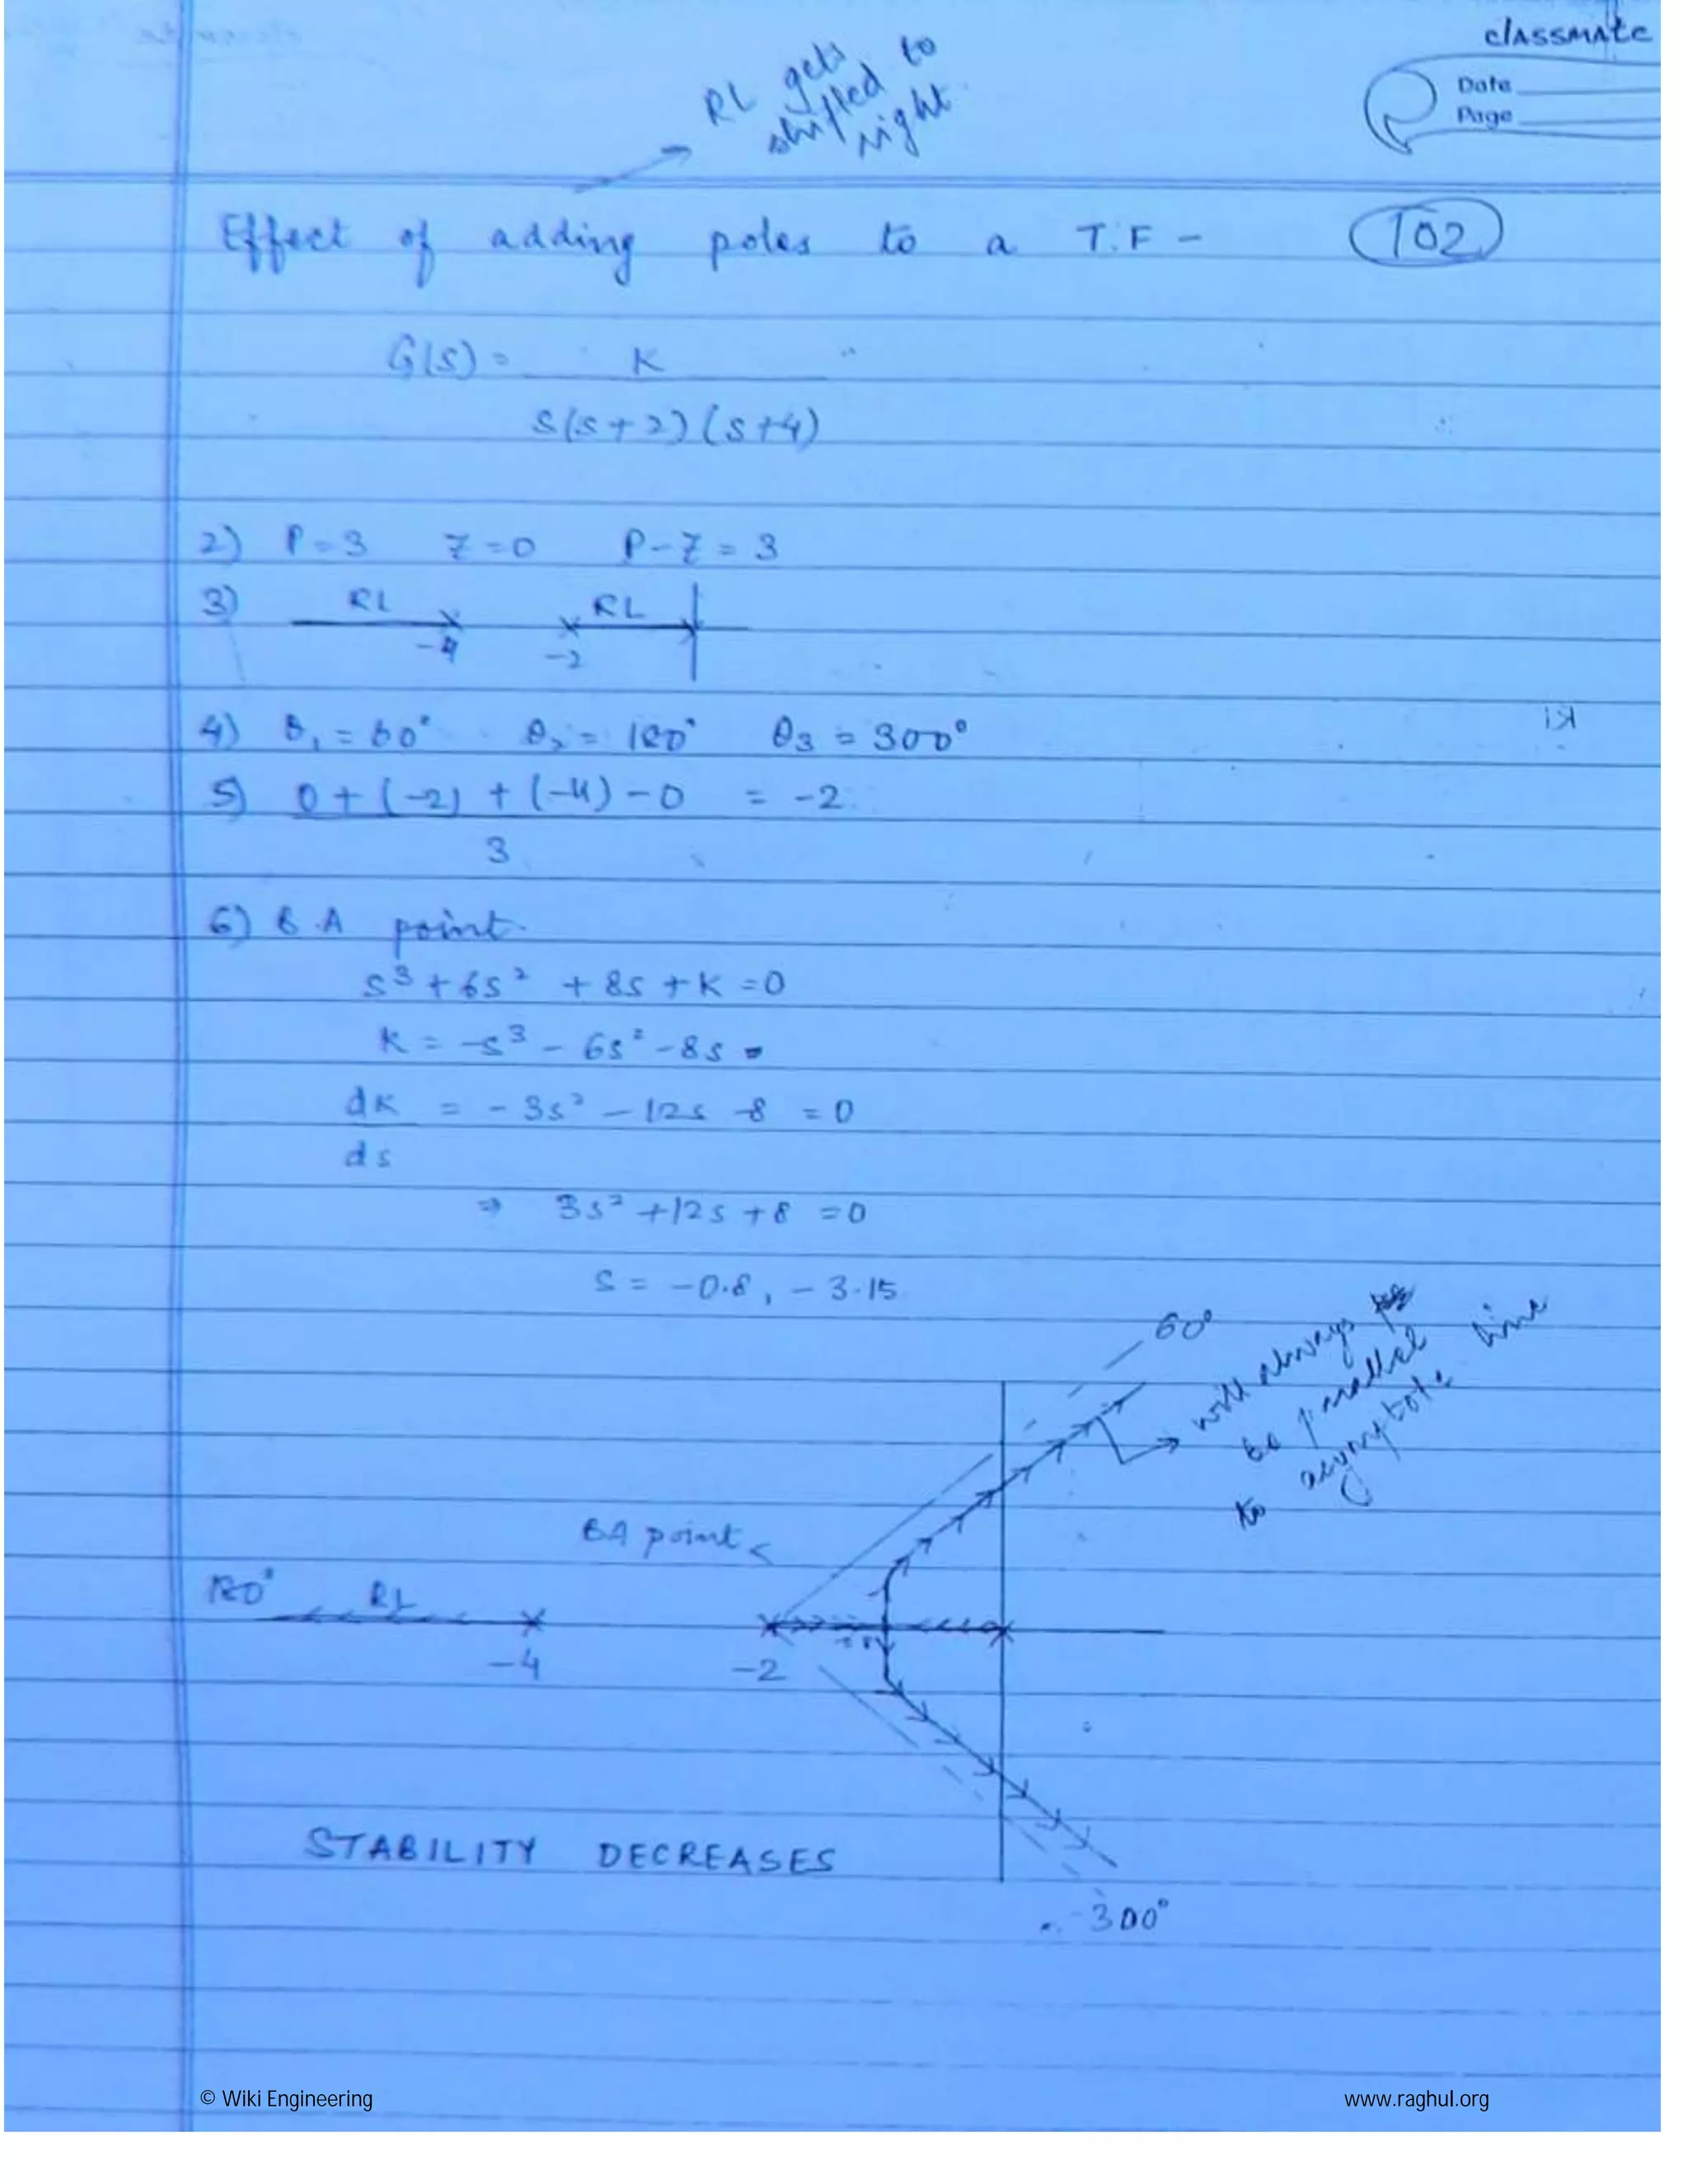 classmate
Date
Page
RL gets
shifted to
right
Effect of adding poles to a T.F – 102
G(s) = K
s(s+2)(s+4)
2) P=3 Z=0 P-Z=3
3) RL RL
-4 -2
4) θ₁ = 60° θ₂ = 180° θ₃ = 300°
5) 0+(-2)+(-4)-0 = -2
3
6) B.A point
s³+6s²+8s+K=0
K = -s³-6s²-8s
dK = -3s²-12s-8 =0
ds
⇒ 3s²+12s+8 =0
s = -0.8, -3.15
60°
will always
be parallel
to asymptote line
BA point
180° RL
-4 -2
STABILITY DECREASES
300°
© Wiki Engineering www.raghul.org